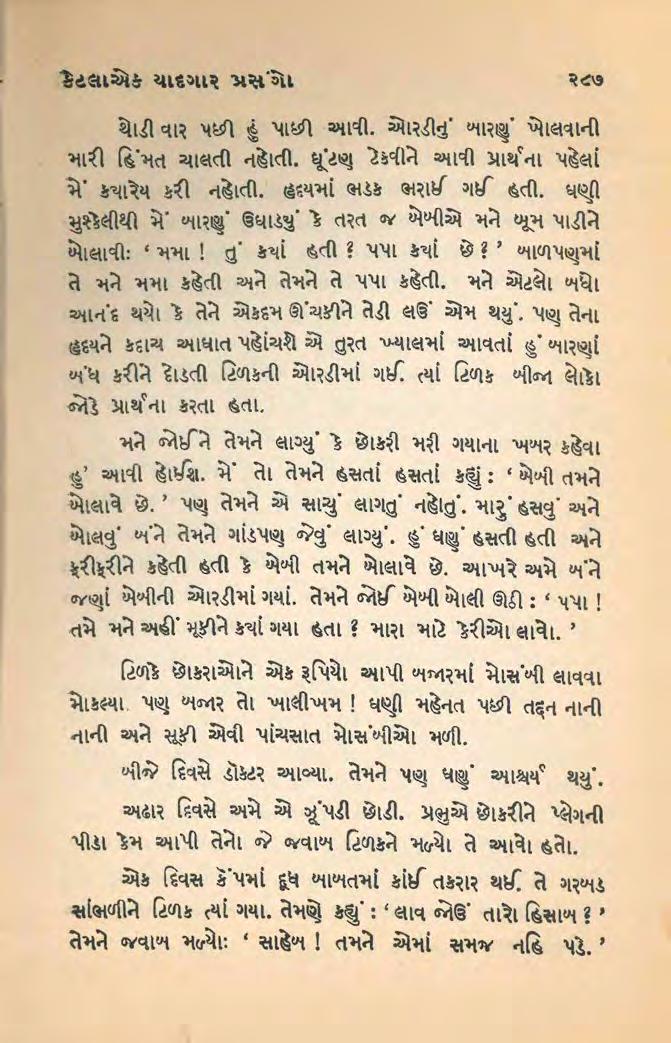 કેટલાએક યાદગાર પ્રસંગો ૨૯૭
થોડી વાર પછી હું પાછી આવી. ઓરડીનું બારણું ખોલવાની
મારી હિંમત ચાલતી નહોતી. ઘૂંટણ ટેકવીને આવી પ્રાર્થના પહેલાં
મેં કયારેય કરી નહોતી. હૃદયમાં ભડક ભરાઈ ગઈ હતી. ઘણી
મુશ્કેલીથી મેં બારણું ઉઘાડયું કે તરત જ બેબીએ મને બૂમ પાડીને
બોલાવીઃ ‘ મમા ! તું કયાં હતી ? પપા કયાં છે ? ’ બાળપણમાં
તે મને મમા કહેતી અને તેમને તે પપા કહેતી. મને એટલો બધો
આનંદ થયો કે તેને એકદમ ઊંચકીને તેડી લઉં એમ થયું. પણ તેના
હૃદયને કદાચ આઘાત પહોંચશે એ તુરત ખ્યાલમાં આવતાં હું બારણાં
બંધ કરીને દોડતી ટિળકની ઓરડીમાં ગઈ. ત્યાં ટિળક બીજા લોકો
જોડે પ્રાર્થના કરતા હતા.
મને જોઈને તેમને લાગ્યું કે છોકરી મરી ગયાના ખબર કહેવા
હું આવી હોઈશ. મેં તો તેમને હસતાં હસતાં કહ્યું : ‘ બેબી તમને
બોલાવે છે. ’ પણ તેમને એ સાચું લાગતું નહોતું. મારું હસવું અને
બોલવું બંને તેમને ગાંડપણ જેવું લાગ્યું. હું ઘણું હસતી હતી અને
ફરીફરીને કહેતી હતી કે બેબી તમને બોલાવે છે. આખરે અમે બંને
જણાં બેબીની ઓરડીમાં ગયાં. તેમને જોઈ બેબી બોલી ઊઠી : ‘ પપા !
તમે મને અહીં મૂકીને કયાં ગયા હતા ? મારા માટે કેરીઓ લાવો. ’
ટિળકે છોકરાઓને એક રૂપિયો આપી બજારમાં મોસંબી લાવવા
મોકલ્યા. પણ બજાર તો ખાલીખમ ! ઘણી મહેનત પછી તદ્દન નાની
નાની અને સૂકી એવી પાંચસાત મોસંબીઓ મળી.
બીજે દિવસે ડૉકટર આવ્યા. તેમને પણ ઘણું આશ્ચર્ય થયું.
અઢાર દિવસે અમે એ ઝૂંપડી છોડી. પ્રભુએ છોકરીને પ્લેગની
પીડા કેમ આપી તેનો જે જવાબ ટિળકને મળ્યો તે આવો હતો.
એક દિવસ કૅંપમાં દૂધ બાબતમાં કાંઈ તકરાર થઈ. તે ગરબડ
સાંભળીને ટિળક ત્યાં ગયા. તેમણે કહ્યું : ‘ લાવ જોઉં તારો હિસાબ ? ’
તેમને જવાબ મળ્યોઃ ‘ સાહેબ ! તમને એમાં સમજ નહિ પડે. ’